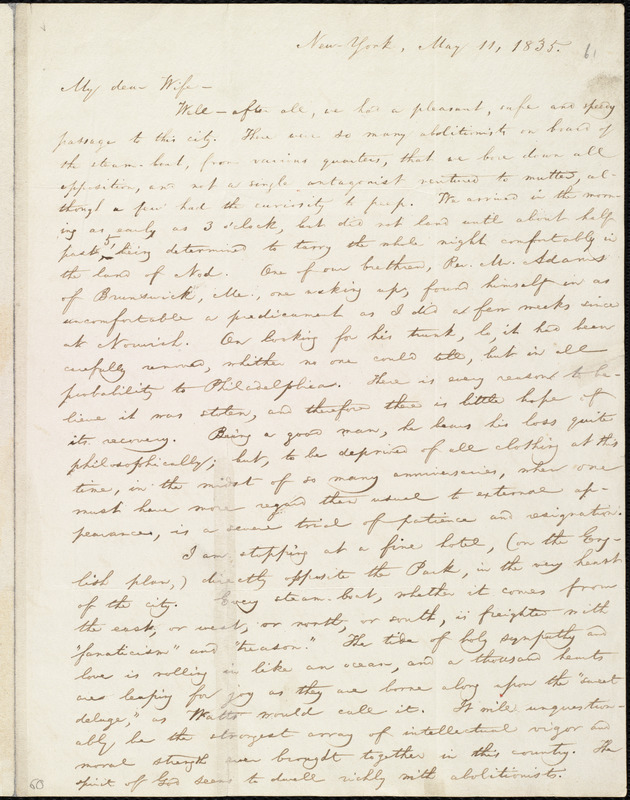 New-York, May 11, 1835.
61
My dear Wife—
Well—after all, we had a pleasant, safe and speedy
passage to this city. There were so many abolitionists on board of
the steam-boat, from various quarters, that we bore down all
opposition, and not a single antagonist ventured to mutter, al-
though a few had the curiosity to peep. We arrived in the morn-
ing as early as 3 o'clock, but did not land until about half
past 5, being determined to tarry the whole night comfortably in
the land of Nod. One of our brethren, Rev. Mr. Adams
of Brunswick, Me., on waking up, found himself in as
uncomfortable a predicament as I did a few weeks since
at Norwich. On looking for his trunk, lo, it had been
carefully removed, whither no one could tell, but in all
probability to Philadelphia. There is every reason to be-
lieve it was stolen, and therefore there is little hope of
its recovery. Being a good man, he bears his loss quite
philosophically; but, to be deprived of all clothing at this
time, in the midst of so many anniversaries, when one
must have more regard than usual to external ap-
pearances, is a severe trial of patience and resignation.
I am stopping at a fine hotel, (on the Eng-
lish plan,) directly opposite the Park, in the very heart
of the city. Every steam-boat, whether it comes from
the east, or west, or north, or south, is freighted with
"fanaticism" and "treason." The tide of holy sympathy and
love is rolling in like an ocean, and a thousand hearts
are leaping for joy as they are borne along upon the "sweet
deluge," as Watts would call it. It will unquestion-
ably be the strongest array of intellectual vigor and
moral strength ever brought together in this country. The
spirit of God seems to dwell richly with abolitionists.
60